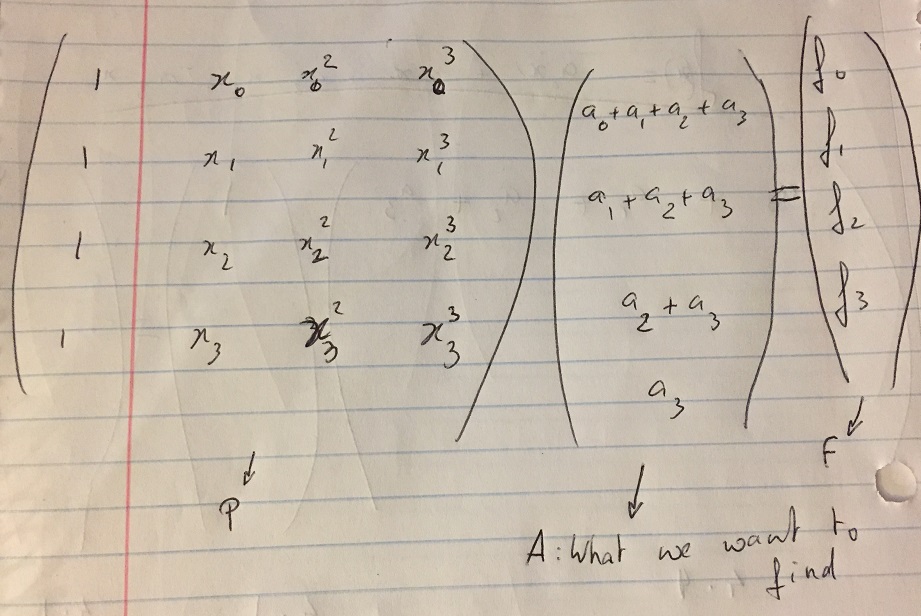 1 x₀ x₀² x₀³
1 x₁ x₁² x₁³
1 x₂ x₂² x₂³
1 x₃ x₃² x₃³
a₀+a₁+a₂+a₃
a₁+a₂+a₃
a₂+a₃
a₃
=
f₀
f₁
f₂
f₃
P
A: What we want to
find
F